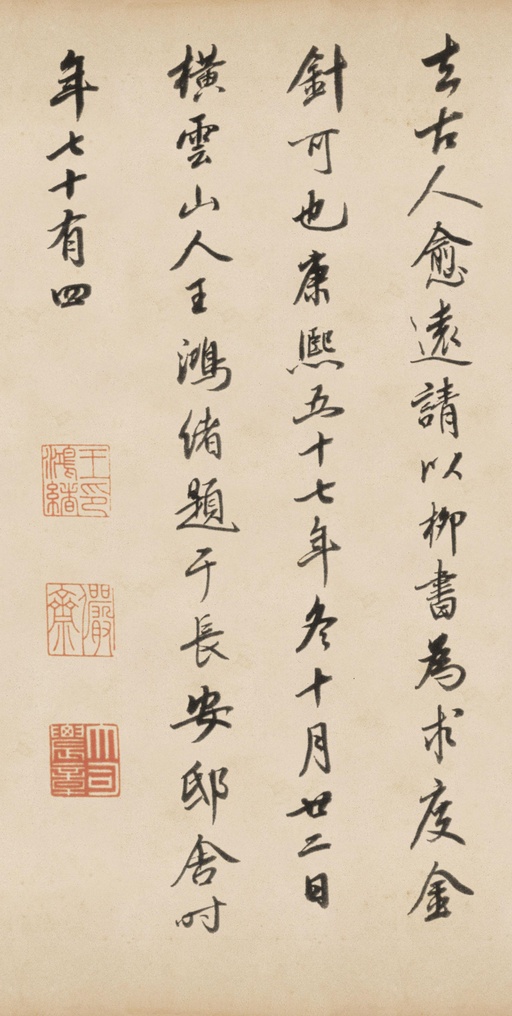 去古人愈遠請以柳書為求度金
針可也康熙五十七年冬十月廿二日
橫雲山人王鴻緒題于長安邸舍时
年七十有四
王印鴻緒
儼齋
大司農章